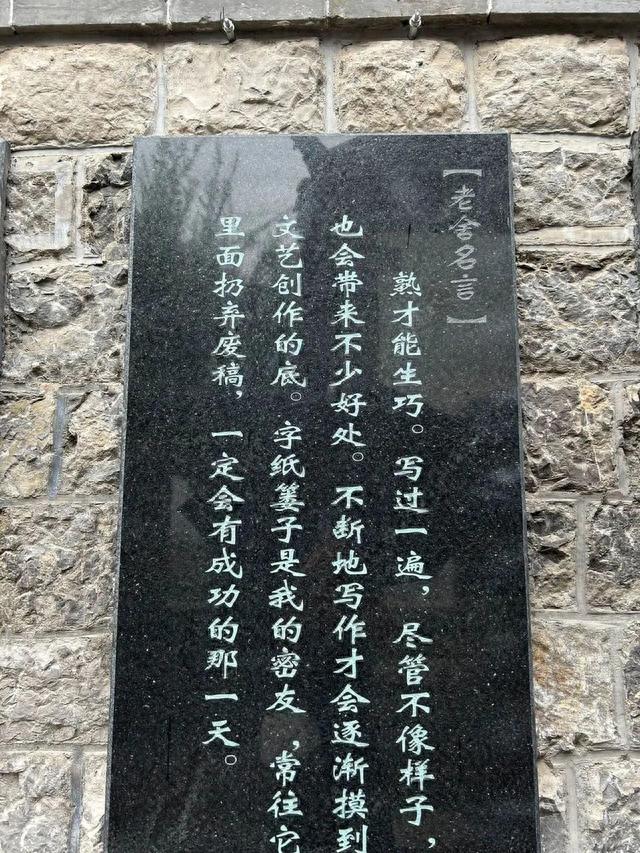 【老舍名言】
熟才能生巧。写过一遍，尽管不像样子，
也会带来不少好处。不断地写作才会逐渐摸到
文艺创作的底。字纸篓子是我的密友，常往它
里面扔弃废稿，一定会有成功的那一天。